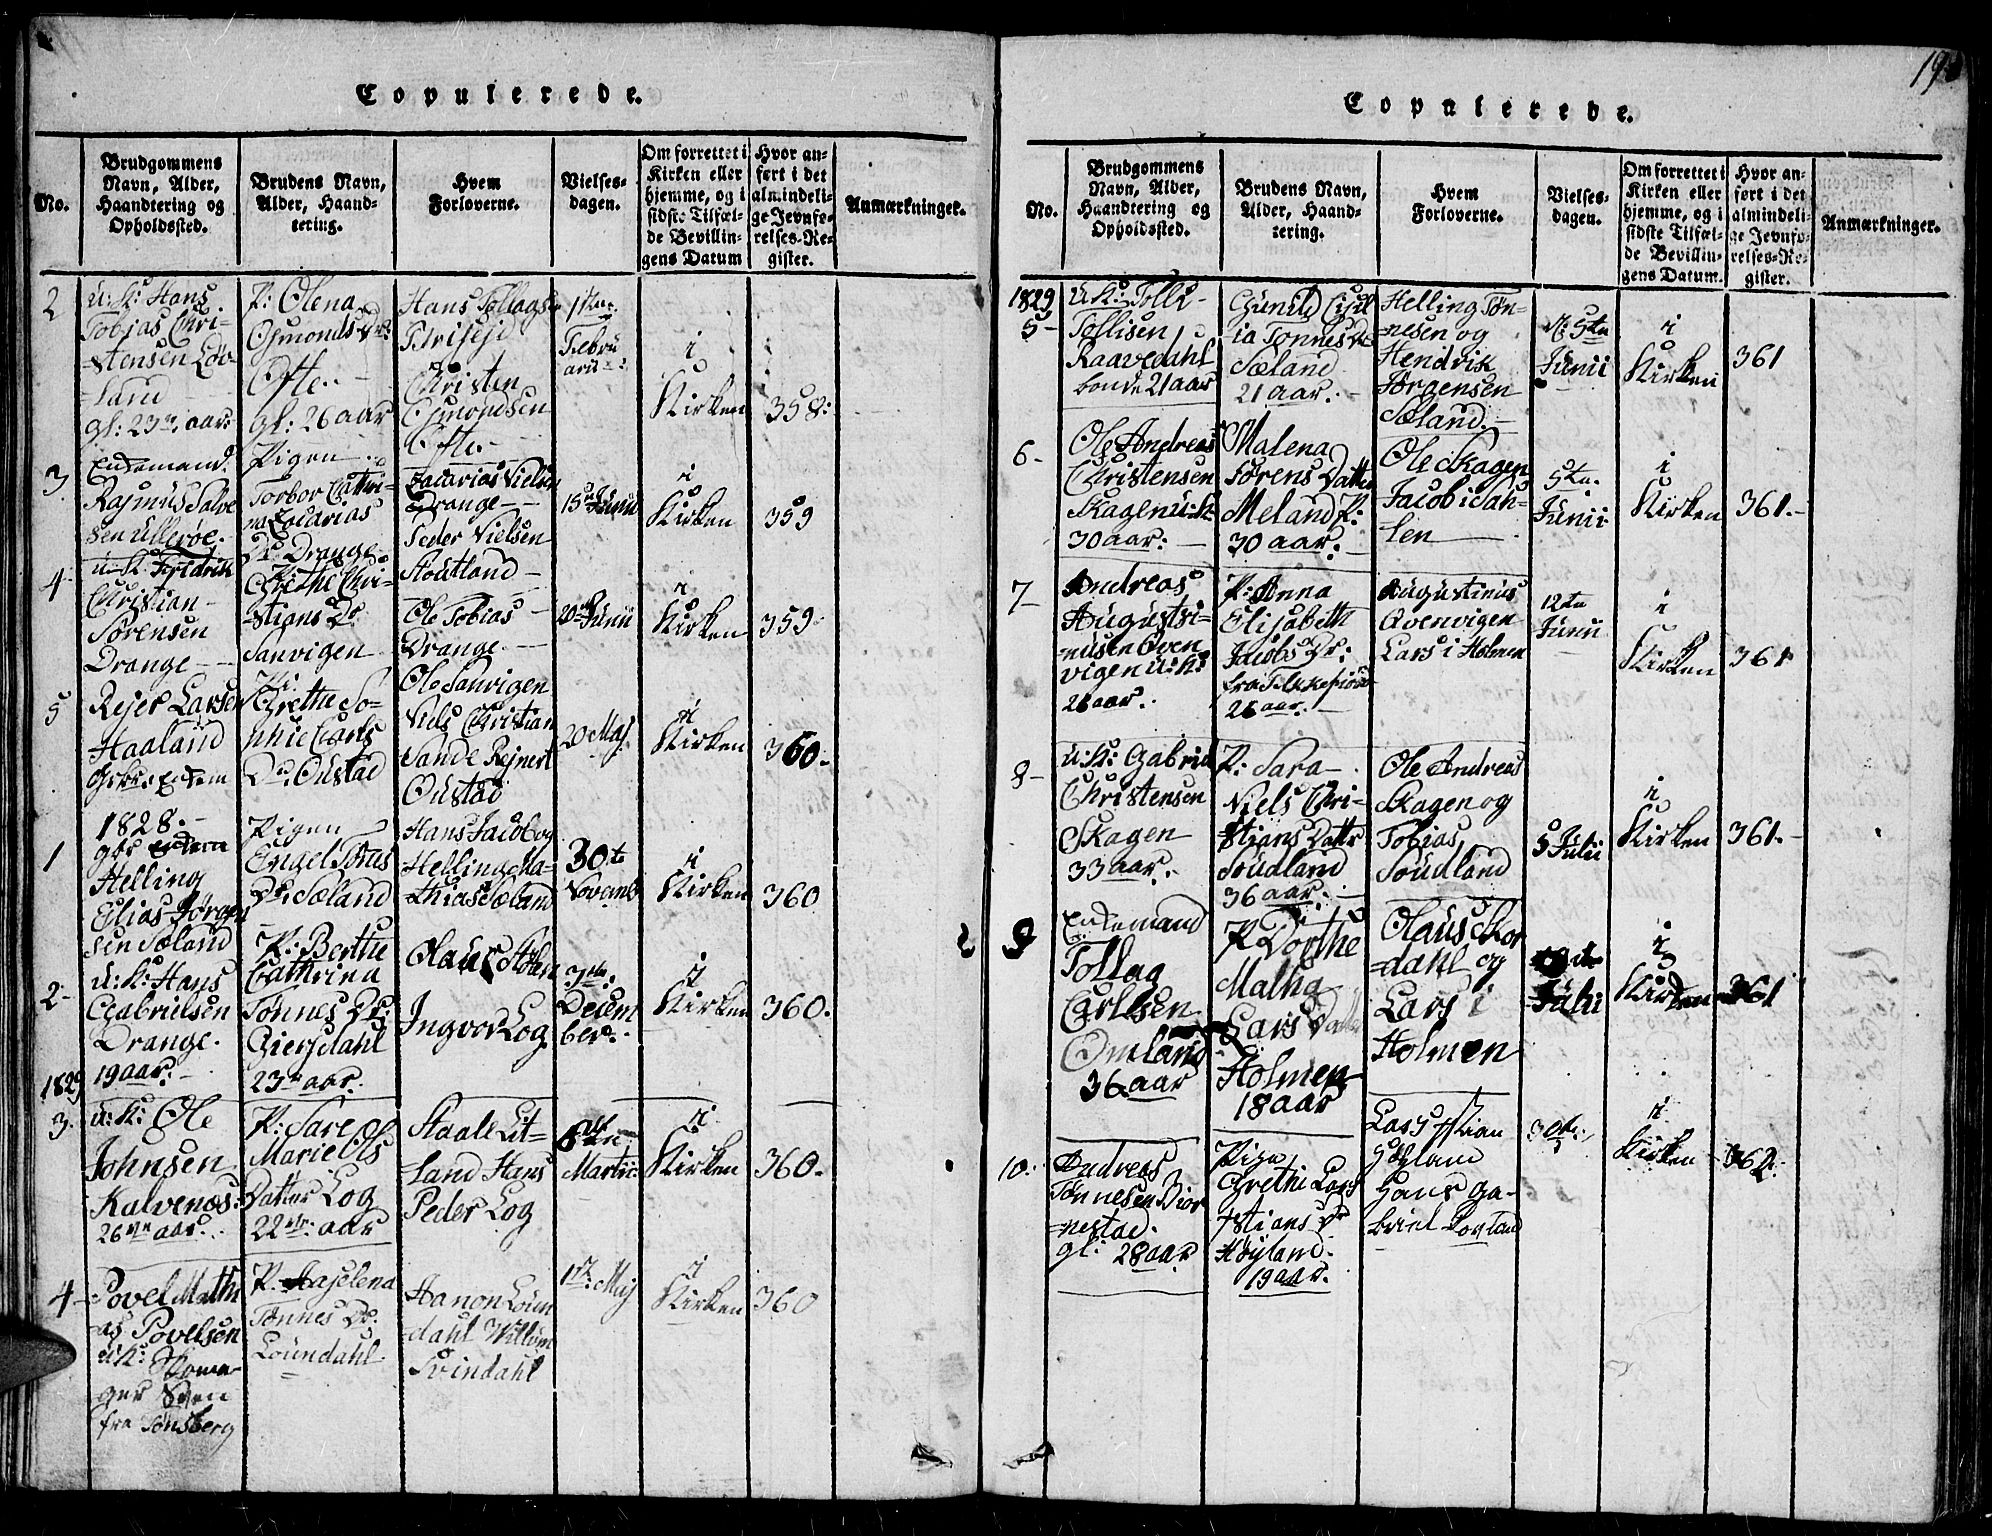 Copulerede.
No.
Brudgommens
Navn, Alder,
Haandtering og
Opholdssted.
Brudens Navn,
Alder, Haand-
tering.
Hvem
Forloverne.
Vielses-
dagen.
Om forrettet i
Kirken eller
hjemme, og i
sidste Tilfæl-
de Bevillin-
gens Datum
Hvor an-
ført i det
almindeli-
ge Jevnfø-
relses-Re-
gister.
Anmærkninger.
2
U: K: Hans
Tobias Chri-
stensen Löv-
land
gl: 23 aar
Enkemand
P: Olena
Osmonds Dr:
Ofte
gl: 26 aar
Hans Tollags
Christen
Osmondsen
Ofte
1ste
Febru
arii
i
Kirken
358:
3
Rasmus Salve
sen Ullerøe
Pigen
Torbor Cathri-
na Zacarias
Dr Drange
Zacarias Nielsen
Drange
Peder Nielsen
Stoutland
15de Junii
i
Kirken
359
4
U. K. Fridrik
Christian
Sörensen
Drange
P:
Grethe Chri-
stians Dr
Sanvigen
Ole Tobias
Drange
Ole Sanvigen
20de Junii
i
Kirken
359
5
Rejer Larsen
Haaland
P:
Grethe So-
phie Carls
Dr. Oustad
Niels Christian
Sande Rejnert
Oustad
20 Maj
i
Kirken
360
1828.
1
Helling
Elias Jörgen
sen Sæland
Pigen
Engel Tönes
Dr. Sæland
Hans Jacob og
Helling Ma-
thias Sæland
30te
Novemb
i
Kirken
360
2
U: K: Hans
Gabrielsen
Drange
19 aar
P: Berthe
Cathrina
Tønnes Dr:
Giersdahl
23 aar
Olaus
Ingvor Log
3die
Decem
ber
i
Kirken
360.
1829
3
U: K: Ole
Johnsen
Kalvenæs
26 aar
P: Sare
Marie Ols
Datter Log
22 aar
Staale Lit-
land Hans
Peder Log
Martii
i
Kirken
360
4
Povel Mathi
as Povelsen
U: K: Skoma-
ger Sven
fra Tönsberg
P. Aaselena
Tønnes Dr:
Loundahl
Hanon Loun
dahl Willum
Svindahl
1ste Maj
i
Kirken
360
19
Copulerede.
No.
Brudgommens
Navn, Alder,
Haandtering og
Opholdssted.
Brudens Navn,
Alder, Haand-
tering.
Hvem
Forloverne.
Vielses-
dagen.
Om forrettet i
Kirken eller
hjemme, og i
sidste Tilfæl-
de Bevillin-
gens Datum.
Hvor an-
ført i det
almindeli-
ge Jevnfø-
relses-Re-
gister.
Anmærkninger.
1829
5
U: K: Tolli
Tollisen
Raavedahl
bonde 21 aar
Gunild
ia Tonnes Dr
Sæland
21 aar.
Helling Tøn-
nesen og
Hendrik
Jørgensen
Sæland
5te
Junii
i
Kirken
361
6
Ole Andreas
Christensen
Skagen U: K:
30 aar:
Malena
Sørens Datter
Meland P:
30 aar:
Ole Skagen
Jacob i Sah-
len
5te
Junii
i
Kirken
361.
7
Andreas
Augusti-
nusen Oven
vigen U: K:
26 aar.
P: Anna
Elisabeth
Jacobs Dr:
fra Flekkefiord
26 aar.
Augustinus
Ovenvigen
Lars i Holmen
12te
Junii
i
Kirken
361
8
U: K: Gabriel
Christensen
Skagen
33 aar.
P: Sara
Niels Chri-
stians Dattr
Soudland
36 aar.
Ole Andreas
Skagen og
Tobias
Soudland
5 Julii
i
Kirken
361.
9
Enkemand
Tollag
Carlsen
Omland
36 aar
P Dorthe
Malha
Lars Datter
Holmen
18 aar
Olaus Skor
dahl og
Lars i
Holmen
Julii
i
Kirken
361
10.
Andreas
Tønnesen Biør
nestad.
gl: 28 aar
Piga
Grethe Lars
Høyland.
19 aar.
Hans Ga-
briel
30te
i
Kirken
362.